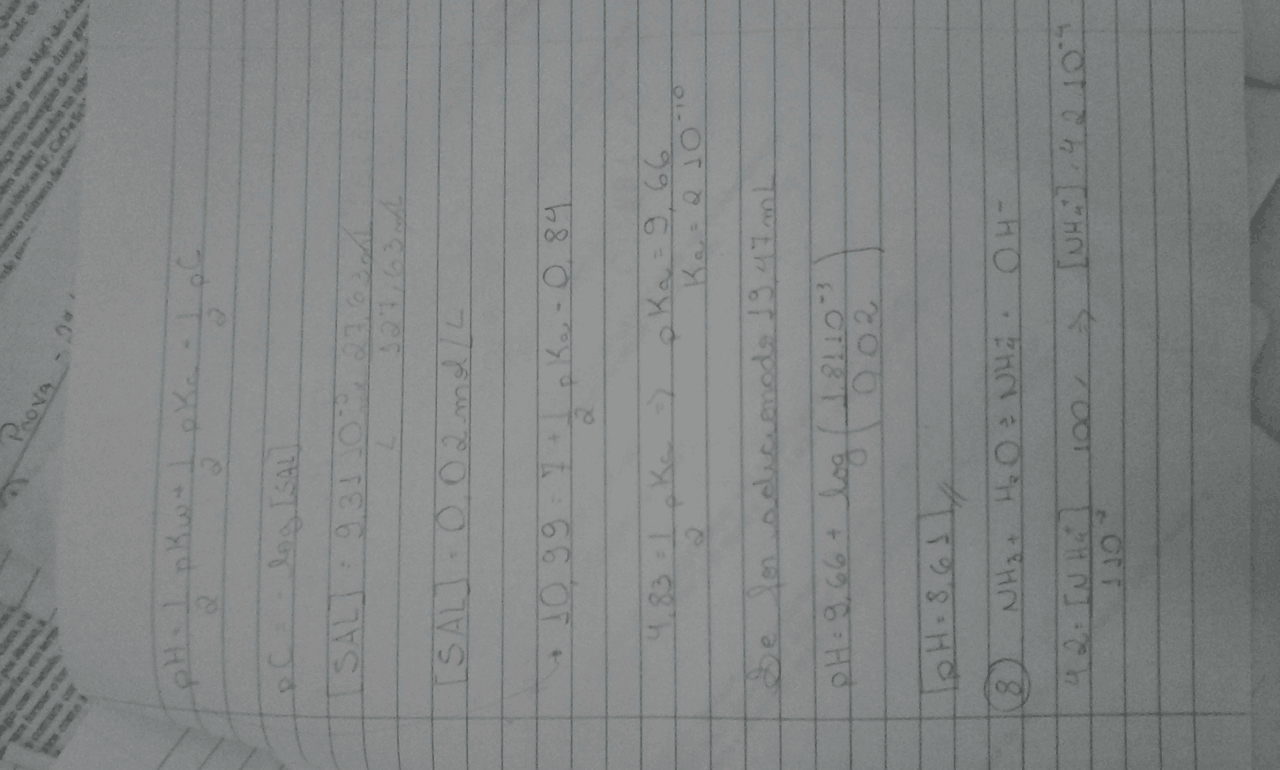 Prova
pH = 1/2 pKw + 1/2 pKa - 1/2 pC
pC = - log [SAL]
[SAL] = 9,31 10⁻² . 27,63 mL
127,63 mL
[SAL] = 0,02 mol/L
→ 10,99 = 7 + 1/2 pKa - 0,84
4,83 = 1/2 pKa => pKa = 9,66
Ka = 2 10⁻¹⁰
Se for adicionado 19,47 mL
pH = 9,66 + log (1,81 10⁻³ / 0,02)
pH = 8,61 //
8 NH₃ + H₂O ⇌ NH₄⁺ + OH⁻
4,2 = [NH₄⁺] 100 / 1 10⁻² => [NH₄⁺] = 4,2 10⁻⁴